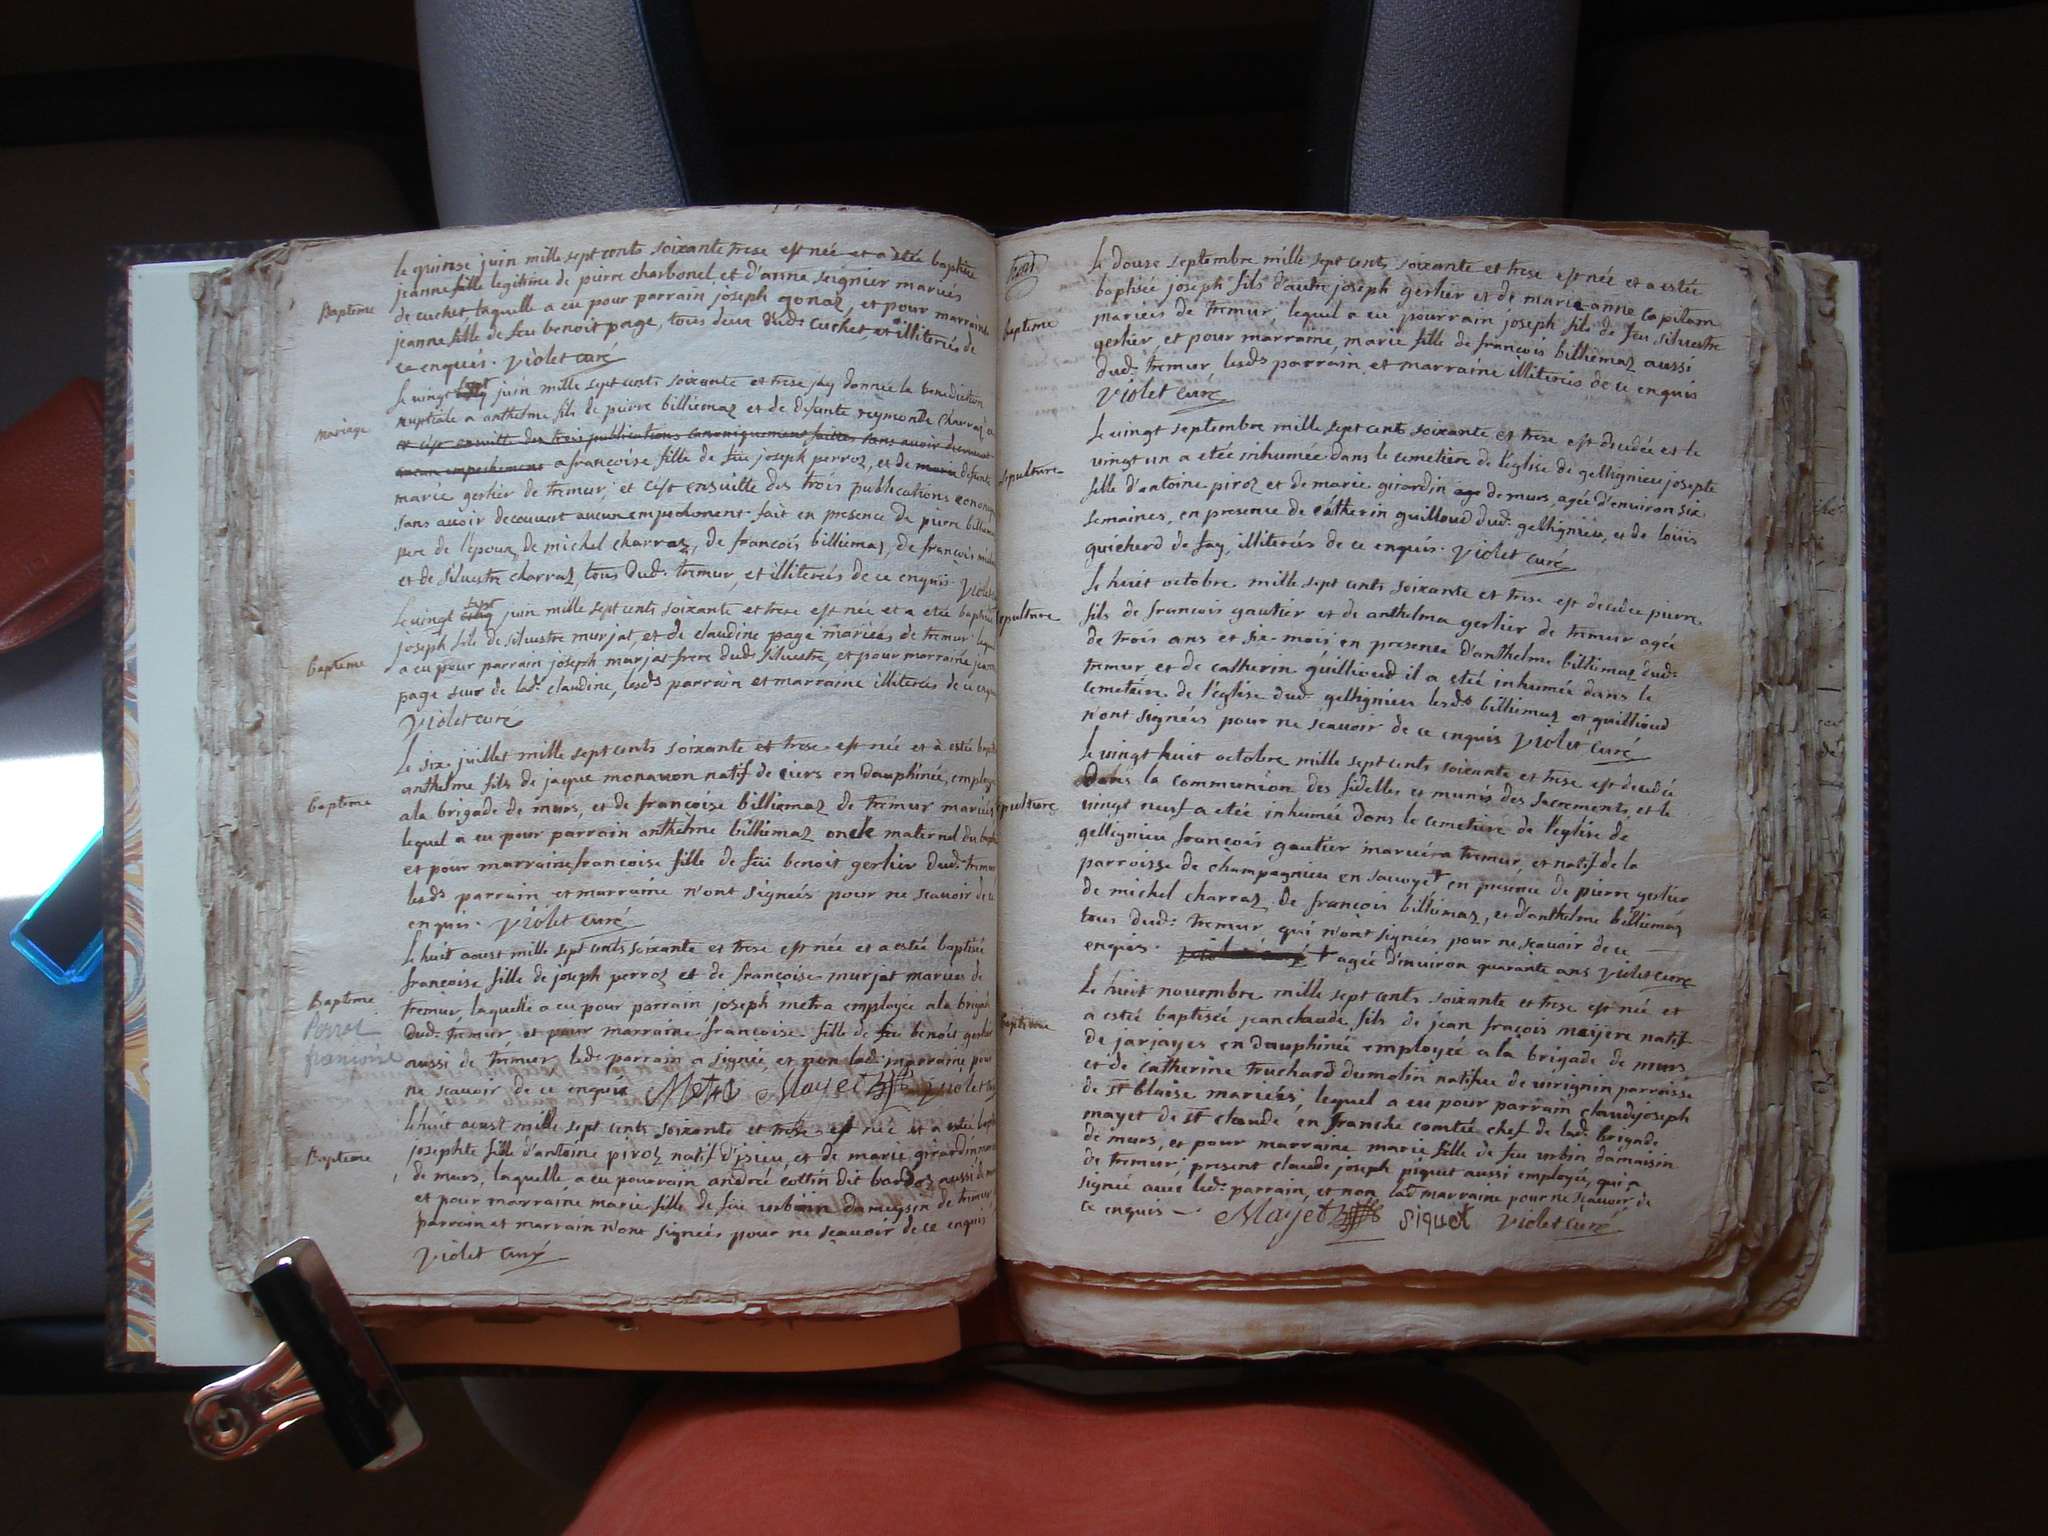 le quinse juin mille sept cents soixante trese est née et a etée baptisée
Bapteme
jeanne fille legitime de pierre charbonel et d'anne seignier mariés
de cuchet laquelle a eu pour parrain joseph gonaz, et pour marraine
jeanne fille de feu benoit page, tous deux dud. cuchet, et illiterés de
ce enqués. violet curé
le vingt sept juin mille sept cents soixante et trese jay donnée la benediction
mariage
nuptiale a anthelme fils de pierre billiemaz et de defunte reymonde charraz
et c'est ensuitte des trois publications canoniquement faittes sans avoir decouvert
aucun empechement a françoise fille de feu joseph perroz, et de marie defunte
marie gerlier de tremur, et c'est ensuitte des trois publications
sans avoir decouvert aucun empechement fait en presence de pierre
pere de l'epoux, de michel charraz, de francois billiemaz, de francois
et de silvestre charraz, tous dud. tremur, et illiterés de ce enquis. violet
le vingt sept juin mille sept cents soixante et trese est née et a etée baptisée
joseph fils de silvestre murjat, et de claudine page mariées de tremur
bapteme
a eu pour parrain joseph murjat frere dud. silvestre, et pour marraine
page seur de lad. claudine, lesds parrain et marraine illiterés de ce enquis
violet curé
le six juillet mille sept cents soixante et trese est née et à estée
anthelme fils de jacque monavon natif de ciers en dauphinée, employé
bapteme
a la brigade de murs, et de françoise billiemaz de tremur mariées
lequel à eu pour parrain anthelme billiemaz oncle maternel du
et pour marraine françoise fille de feü benoit gerlier dud. tremur
lesds parrain et marraine n'ont signées pour ne scavoir de ce
enquis. violet curé
le huit aoust mille sept cents soixante et trese est née et a estée baptisée
françoise fille de joseph perroz et de françoise murjat mariees de
Bapteme
tremur, laquelle a eu pour parrain joseph metra employée a la brigade
Perroz
françoise
dud. tremur et pour marraine françoise fille de feu benoit gerlier
aussi de tremur, led. parrain a signée, et non lad. marraine pour
ne scavoir de ce enquis Metra Mayet violet
le huit aoust mille sept cents soixante et trese est née et a estée
josephte fille d'antoine piroz natif d'jsieu, et de marie girardin
Bapteme
de murs, laquelle a eu pour parrain andrée cottin dit bardoz aussi
et pour marraine marie fille de feu urbain dameysin de tremur
parrain et marrain n'ont signées pour ne scavoir de ce enquis
violet curé
le douse septembre mille sept cents soixante et trese est née et a estée
baptisée joseph fils d'autre joseph gerlier et de marie anne capitam
bapteme
mariées de tremur, lequel a eu pour parrain joseph fils de feu silvestre
gerlier, et pour marraine, marie fille de francois billiemaz aussi
dud. tremur, lesds parrain et marraine illiterés de ce enquis
violet curé
le vingt septembre mille sept cents soixante et trese est decedée et le
vingt un a etée inhumée dans le cemetiere de l'eglise de gellignieu josepte
sepulture
fille d'antoine piroz et de marie girardin de murs, agée d'environ six
semaines, en presence de catherin guilloud dud. gelligniéu, et de loüis
guicherd de fay, illiterés de ce enquis. violet curé
le huit octobre mille sept cents soixante et trese est decedee pierre
sepulture
fils de francois gautier et de anthelma gerlier de tremur agé
de trois ans et six mois en presence d'anthelme billiemaz dud.
tremur et de catherin guillioud il a etée inhumée dans le
cemetiére de l'église dud. gelligniéu lesds billiemaz et guillioud
n'ont signées pour ne scavoir de ce enquis violet curé
le vingt huit octobre mille sept cents soixante et trese est decedé
dans la communion des fidelles et munis des sacrements, et le
sepulture
vingt neuf a etée inhumée dans le cemetiere de l'église de
gelligniéu françois gautier mariée a tremur, et natif de la
parroisse de champagnieu en savoye en presence de pierre gerlier
de michel charraz, de francois billiemaz, et d'anthelme billiemaz
tous dud. tremur, qui n'ont signées pour ne scavoir de ce
enquis. + agée d'environ quarante ans violet curé
le huit novembre mille sept cents soixante et trese est née et
baptéme
à estée baptisée jean claude fils de jean françois meijere natif
de jarjayes en dauphinée employée a la brigade de murs
et de catherine truchard dumolin natifue de virignin parroisse
de st blaise mariées, lequel a eu pour parrain claudjoseph
mayet de st claude en franche comtée chef de lad. brigade
de murs, et pour marraine marie fille de feu urbin damaisin
de tremur, present claude joseph piquet aussi employée, qui a
signée avec led. parrain, et non lad. marraine pour ne scavoir, de
ce enquis Mayet piquet violet curé